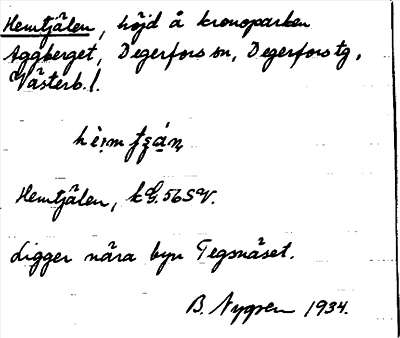 Hemtjälen, höjd å kronoparken
Aggberget, Degerfors sn, Degerfors tg,
Västerb. l.
Hemtjälen, kbl. 56 SV.
Ligger nära byn Tegsnäset.
B. Nygren 1934.